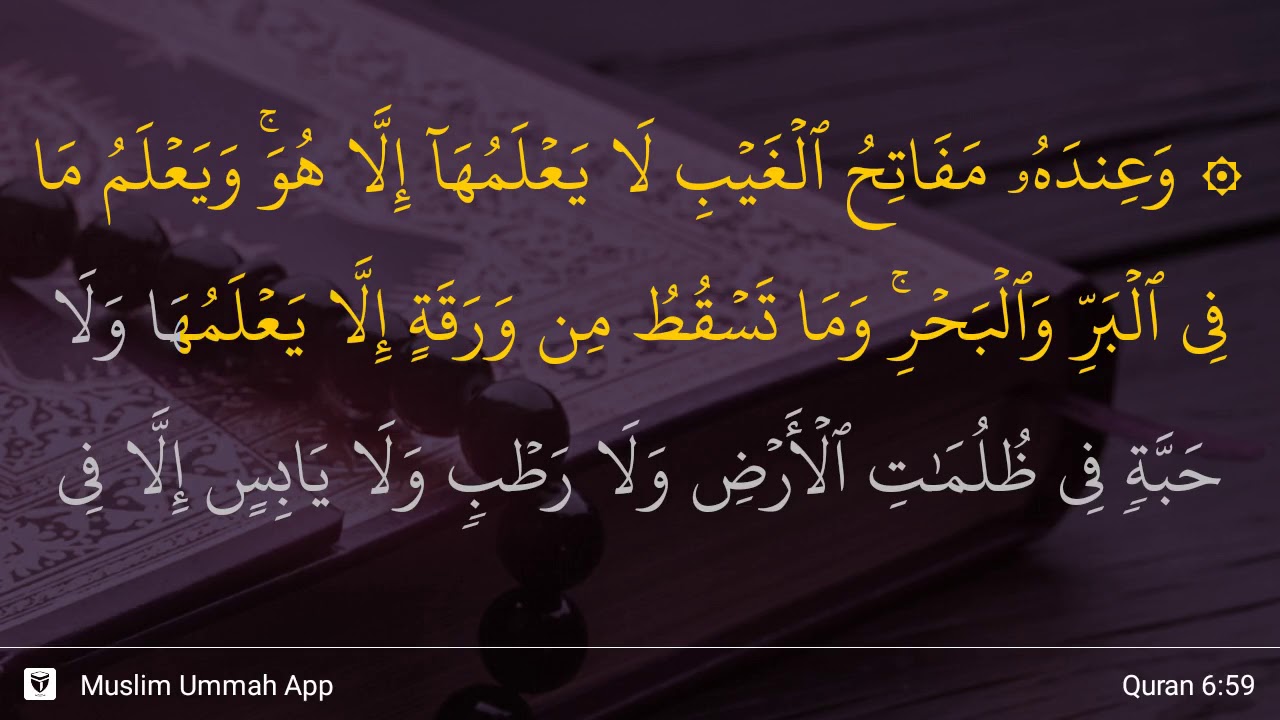 ۞ وَعِندَهُۥ مَفَاتِحُ ٱلْغَيْبِ لَا يَعْلَمُهَآ إِلَّا هُوَ ۚ وَيَعْلَمُ مَا
فِى ٱلْبَرِّ وَٱلْبَحْرِ ۚ وَمَا تَسْقُطُ مِن وَرَقَةٍ إِلَّا يَعْلَمُهَا وَلَا
حَبَّةٍۢ فِى ظُلُمَـٰتِ ٱلْأَرْضِ وَلَا رَطْبٍۢ وَلَا يَابِسٍ إِلَّا فِى
Muslim Ummah App
Quran 6:59